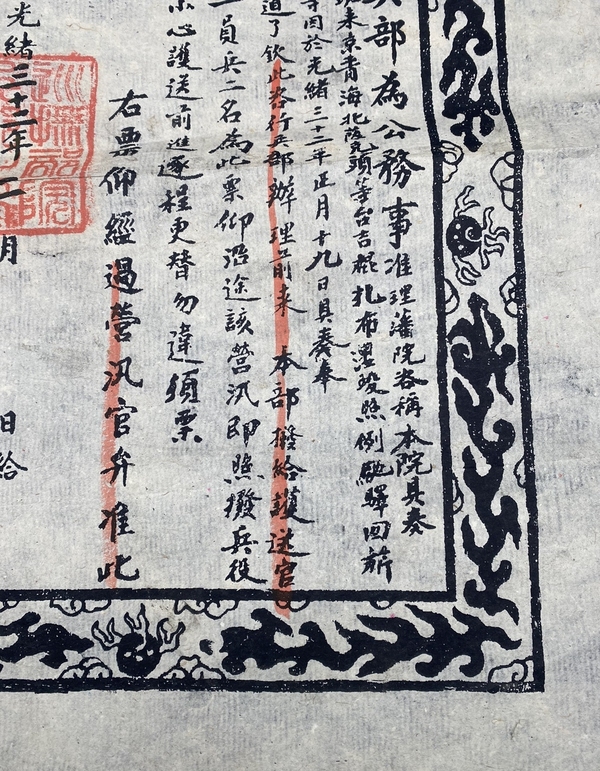 部為公務事准理藩院咨稱本院具奏
來京青海北陸克頭等台吉棍扎布濃駿照例馳驛回
等因於光緒三十二年正月十九日具奏奉
道了欽此咨行兵部辦理前來本部撥給護送官
一員兵二名為此票仰沿途該營汛即照撥兵役
小心護送前進逐程更替勿違須票
右票仰經過營汛官弁准此
光緒三十二年二月
日給